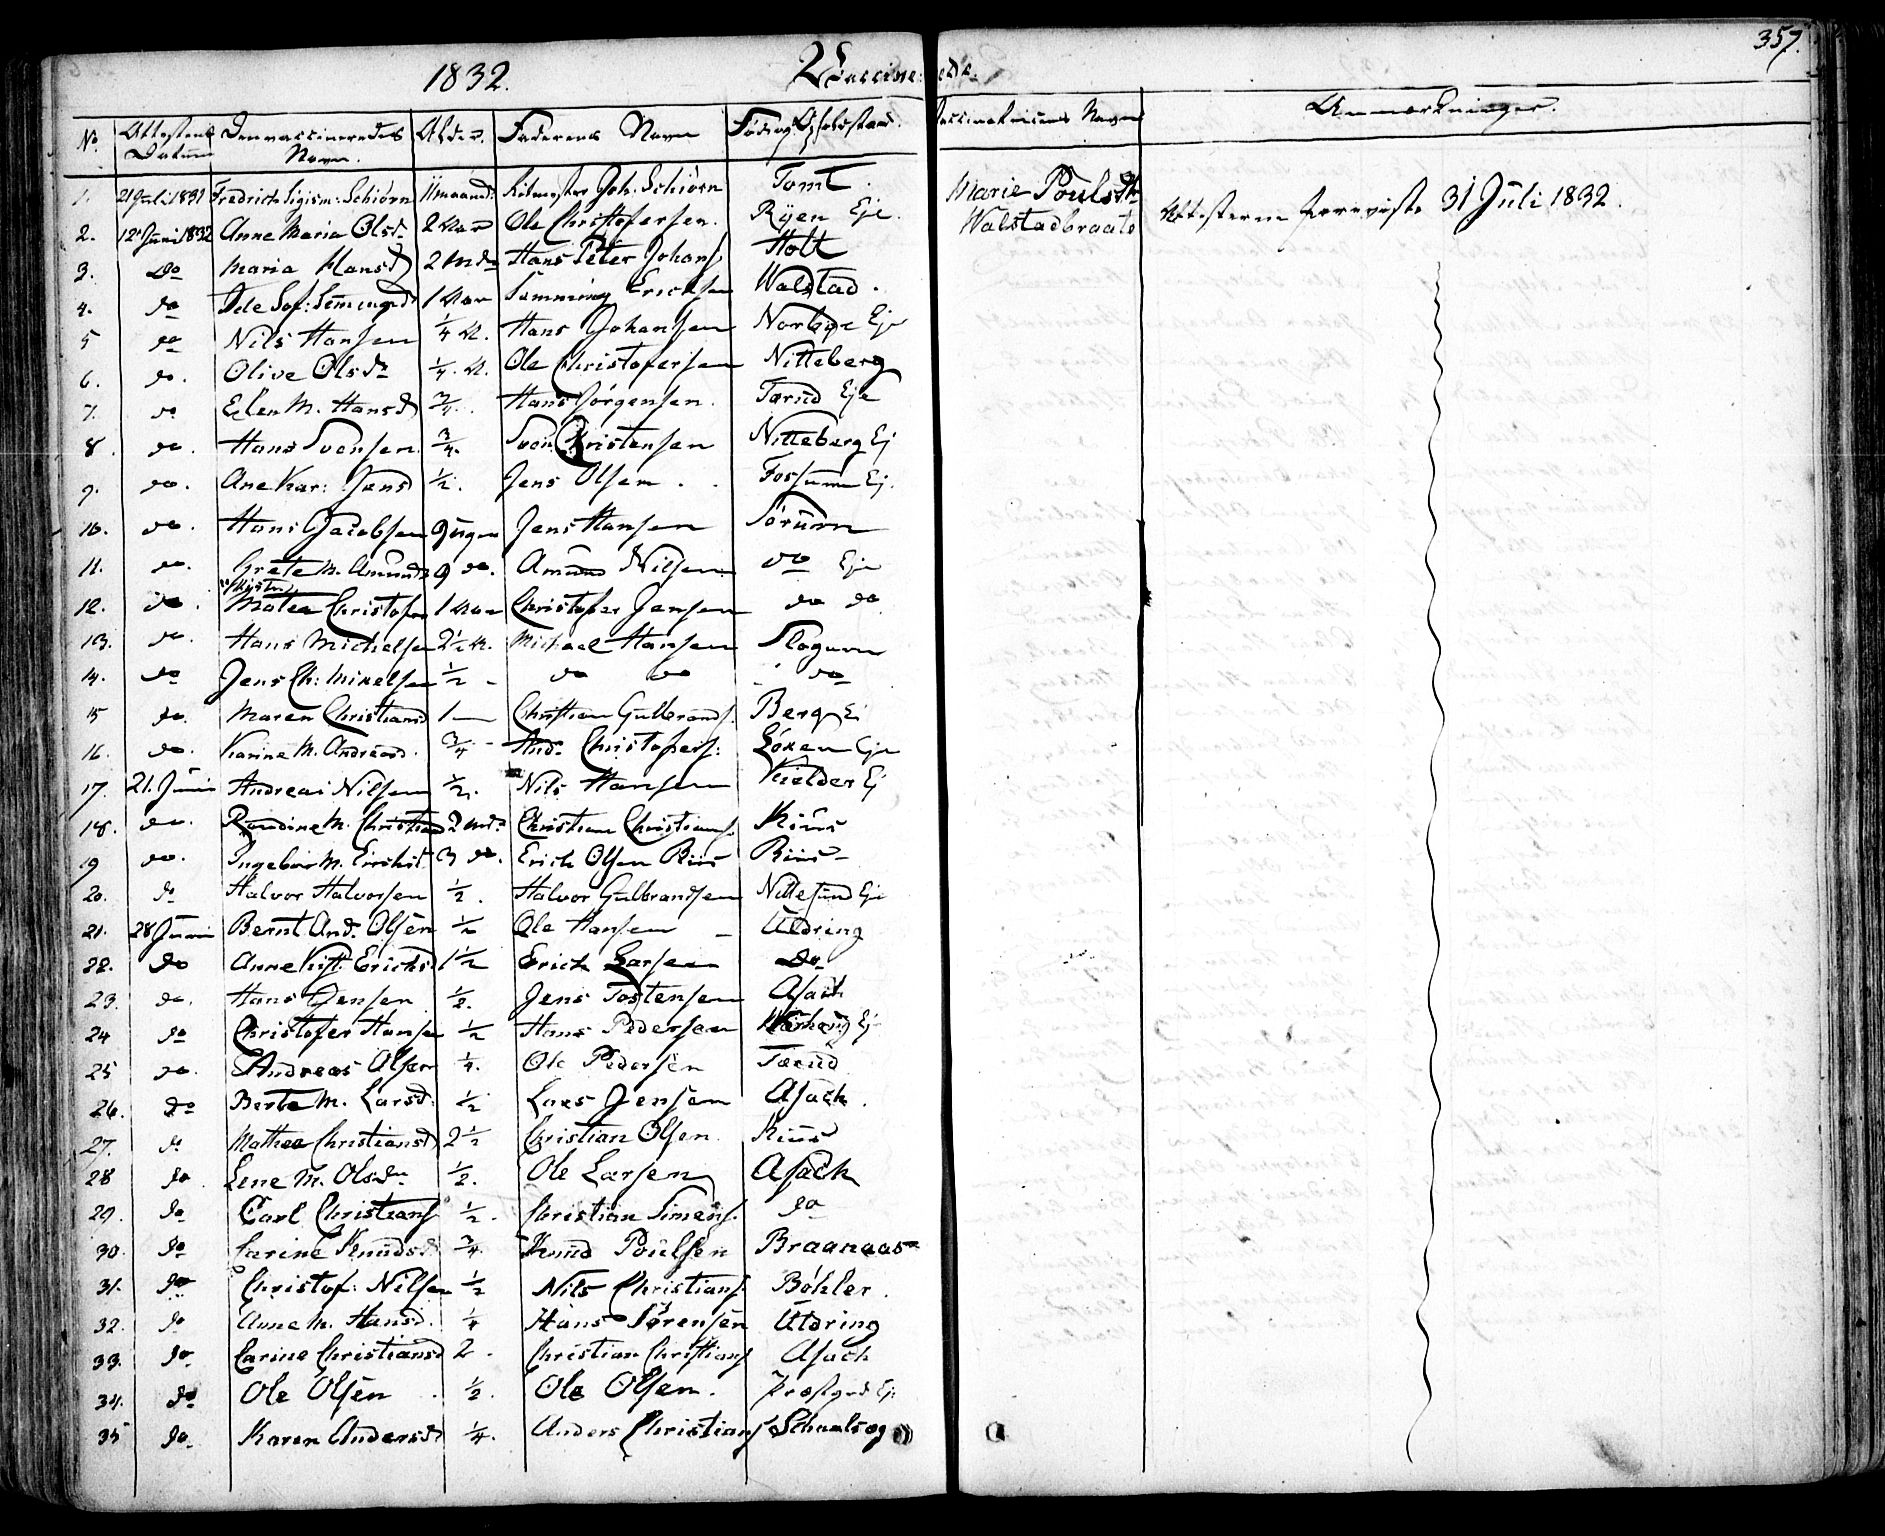 357.
1832. Vaccinerede.
No. Attestens Datum Den vaccineredes Navn. Alder. Faderens Navn Føde og Opholdssted. Vaccinateurens Navn Anmærkninger.
1. 21 Juli 1831 Fredrich Sigism: Schiørn 11 maaned: Ritmester Joh: Schiørn Tomt. Marie Poulsdr Walstadbraate Attesterne foreviiste 31 Juli 1832.
2. 12te Juni 1832 Anne Maria Olsd. 2 Aar Ole Christofersen. Ryen Eje.
3. do Maria Hansd 2 Mdr Hans Peter Johans. Holt
4. do Sof: Semingsd 1 Aar Semming Ericksen Walstad.
5 do Nils Hansen 1/4 A. Hans Johansen Norbye Eje
6. do. Olive Olsdr 1/4 A. Ole Christofersen Nitteberg
7. do Elen M. Hansd 3/4. Hans Jørgensen. Tærud Eje
8. do. Hans Svensen. 3/4. Sven Christensen Nitteberg Ej
9. do. Ane Kar: Jensd 1/2. Jens Olsen Fossum Ej.
10. do. Hans Jacobsen 9 Uger Jens Hansen Sørum
11. do. Grete M. Amunds 9 do. Amund Nilsen do Eje
12. do. Matea Christofer 1 Aar Christofer Jensen do do
13. do. Hans Michelsen 2 1/2 A. Michael Hansen Slogum
14. do Jens Ch: Mikelsen 1/2 - do do do
15 do. Maren Christiansd 1 — Christian Gulbrands. Berg Ej
16. do. Karine M. Andreasd. 3/4 - And. Christofers: Løken Eje
17. 21. Juni Andreas Nilsen 1/2. Nils Hansen Kielder Ej
18. do. Randine M. Christiand 2 Md. Christian Christians. Riis
19 do. Ingebor M. Erichst. 3 do. Erich Olsen Riis Riis
20. do Halvor Halvorsen 1/2. Halvor Gulbrandsen Nittesund Eje
21. 28 Juni Bernt And. Olsen 1/2 Ole Hansen - Aldring
22. do Anne Kist. Erichsd 1 1/2 Erich Larsen do
23. do. Hans Jensen 1/2. Jens Tostensen Asach
24 do Christofer Hansen 1/2 Hans Pedersen Ej
25 do. Andreas Olsen 1/4. Ole Pedersen Tærud
26. do Berte M. Larsd. 1/2 Lars Jensen Asach.
27. do Mathea Christiansd 2 1/2 Christian Olsen. Riis
28 do. Lene M. Olsdr 1/2. Ole Larsen Asach
29. do Carl Christians 1/2. Christian Simens. do
30. do Carine Knudsd 3/4. Knud Poulsen Braanaas
31. do Christof: Nilsen 1/2 Nils Christians. Bøhler.
32. do Anne M. Hansd. 1/4 Hans Sørensen Aldring
33. do Carine Christiansd 2. Christian Christians Asach
34. do Ole Olsen 1/2. Ole Olsen. Præstgrd Ej.
35 do. Karen Andersd 1/4. Anders Christians Schulsog